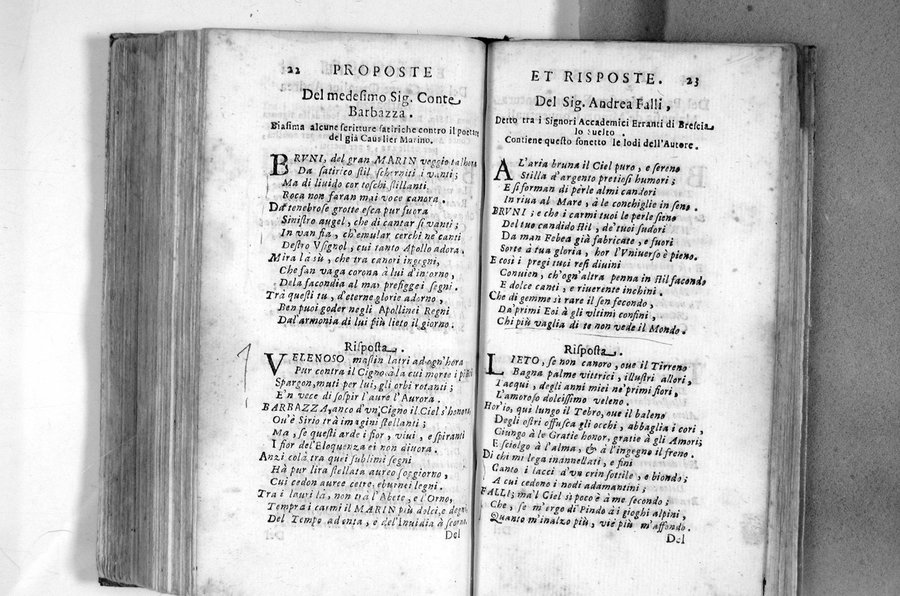 22 PROPOSTE
Del medesimo Sig. Conte
Barbazza.
Biasima alcune scritture satiriche contro il poetare
del già Caualier Marino.
BRVNI, del gran MARIN veggio talhora
Da satirico stil scherniti i vanti;
Ma di liuido cor toschi stillanti
Roca non faran mai voce canora.
Da tenebrose grotte esca pur fuora
Sinistro augel, che di cantar si vanti;
In van fia, ch'emular cerchi ne' canti
Destro Vsignol, cui tanto Apollo adora.
Mira là sù, che tra canori ingegni,
Che fan vaga corona à lui d'intorno,
Dela facondia al mar prefigge i segni.
Tra questi tu, d'eterne glorie adorno,
Ben puoi goder negli Apollinei Regni
Dal'armonia di lui più lieto il giorno.
Risposta.
VELENOSO mastin latri ad ogn'hora
Pur contra il Cigno, à la cui morte i
Spargon, muti per lui, gli orbi rotanti;
E'n vece di sospir l'aure l'Aurora.
BARBAZZA, anco d'vn Cigno il Ciel s'honora
Ou'è Sirio trà imagini stellanti;
Ma, se questi arde i fior, viui, e spiranti
I fior del'Eloquenza ei non diuora.
Anzi colà tra quei sublimi segni
Hà pur lira stellata aureo soggiorno,
Cui cedon auree cetre, eburnei legni.
Tra i lauri là, non trà l'Abete, e l'Orno,
Tempra i carmi il MARIN più dolci, e degni
Del Tempo ad onta, e del'Inuidia à scorno.
Del
ET RISPOSTE. 23
Del Sig. Andrea Falli,
Detto tra i Signori Accademici Erranti di Brescia
lo Suelto.
Contiene questo sonetto le lodi dell'Autore.
AL'aria bruna il Ciel puro, e sereno
Stilla d'argento pretiosi humori;
E si forman di perle almi candori
In riua al Mare, à le conchiglie in seno.
BRVNI; e che i carmi tuoi le perle sieno
Del tuo candido stil, de' tuoi sudori
Da man Febea già fabricate, e fuori
Sorte à tua gloria, hor l'Vniuerso è pieno.
E così i pregi tuoi resi diuini
Conuien, ch'ogn'altra penna in stil facondo
E dolce canti, e riuerente inchini.
Che di gemme sì rare il sen fecondo,
Da' primi Eoi à gli vltimi confini,
Chi più vaglia di te non vede il Mondo.
Risposta.
LIETO, se non canoro, oue il Tirreno
Bagna palme vittrici, illustri allori,
I acqui, degli anni miei ne' primi fiori,
L'amoroso dolcissimo veleno.
Hor'io, qui lungo il Tebro, oue il baleno
Degli ostri offusca gli occhi, abbaglia i cori,
Giungo à le Gratie honor, gratie à gli Amori;
E sciolgo à l'alma, & à l'ingegno il freno.
Di chi mi lega innanellati, e fini
Canto i lacci d'vn crin sottile, e biondo;
A cui cedono i nodi adamantini;
FALLI; ma'l Ciel sì poco è à me secondo;
Che, se m'ergo di Pindo à i gioghi alpini,
Quanto m'inalzo più, vie più m'affondo.
Del